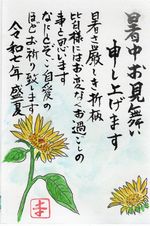 暑中お見舞い
申し上げます
暑さ厳しき折柄
皆様にはお変なくお過ごしの
事と思います
なにとぞご自愛の
ほどお祈り致します
令和七年 盛夏